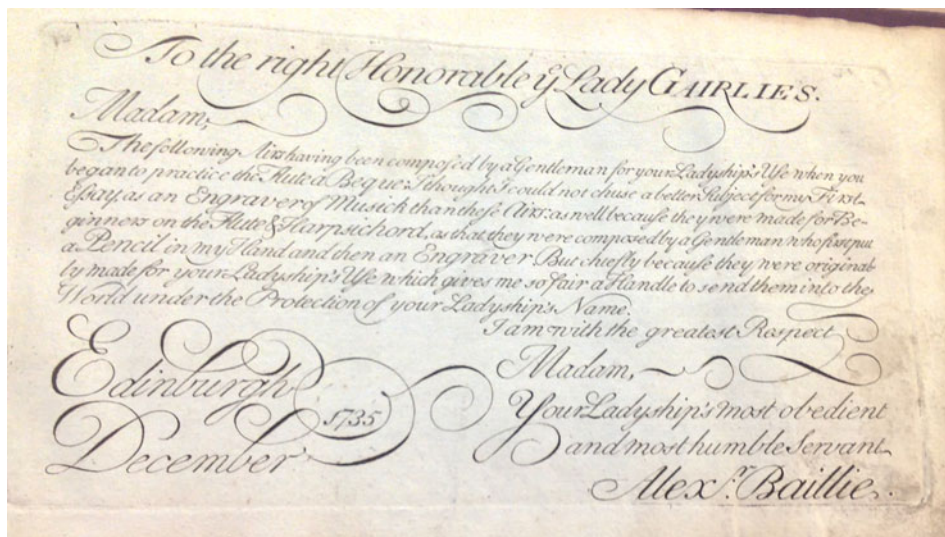 To the right Honorable yͤ Lady GAIRLIES.
Madam,
The following Airs having been composed by a Gentleman for your Ladyship's Use when you
began to practice the Flute a Beque: I thought I could not chuse a better Subject for my First
Essay as an Engraver of Musick than these Airs: as well because they were made for Be-
ginners on the Flute & Harpsichord, as that they were composed by a Gentleman who first put
a Pencil in my Hand and then an Engraver. But chiefly because they were original
ly made for your Ladyship's Use which gives me so fair a Handle to send them into the
World under the Protection of your Ladyship's Name.
I am with the greatest Respect
Madam,
Your Ladyship's most obedient
and most humble Servant
Alexͬ. Baillie.
Edinburgh
December 1735